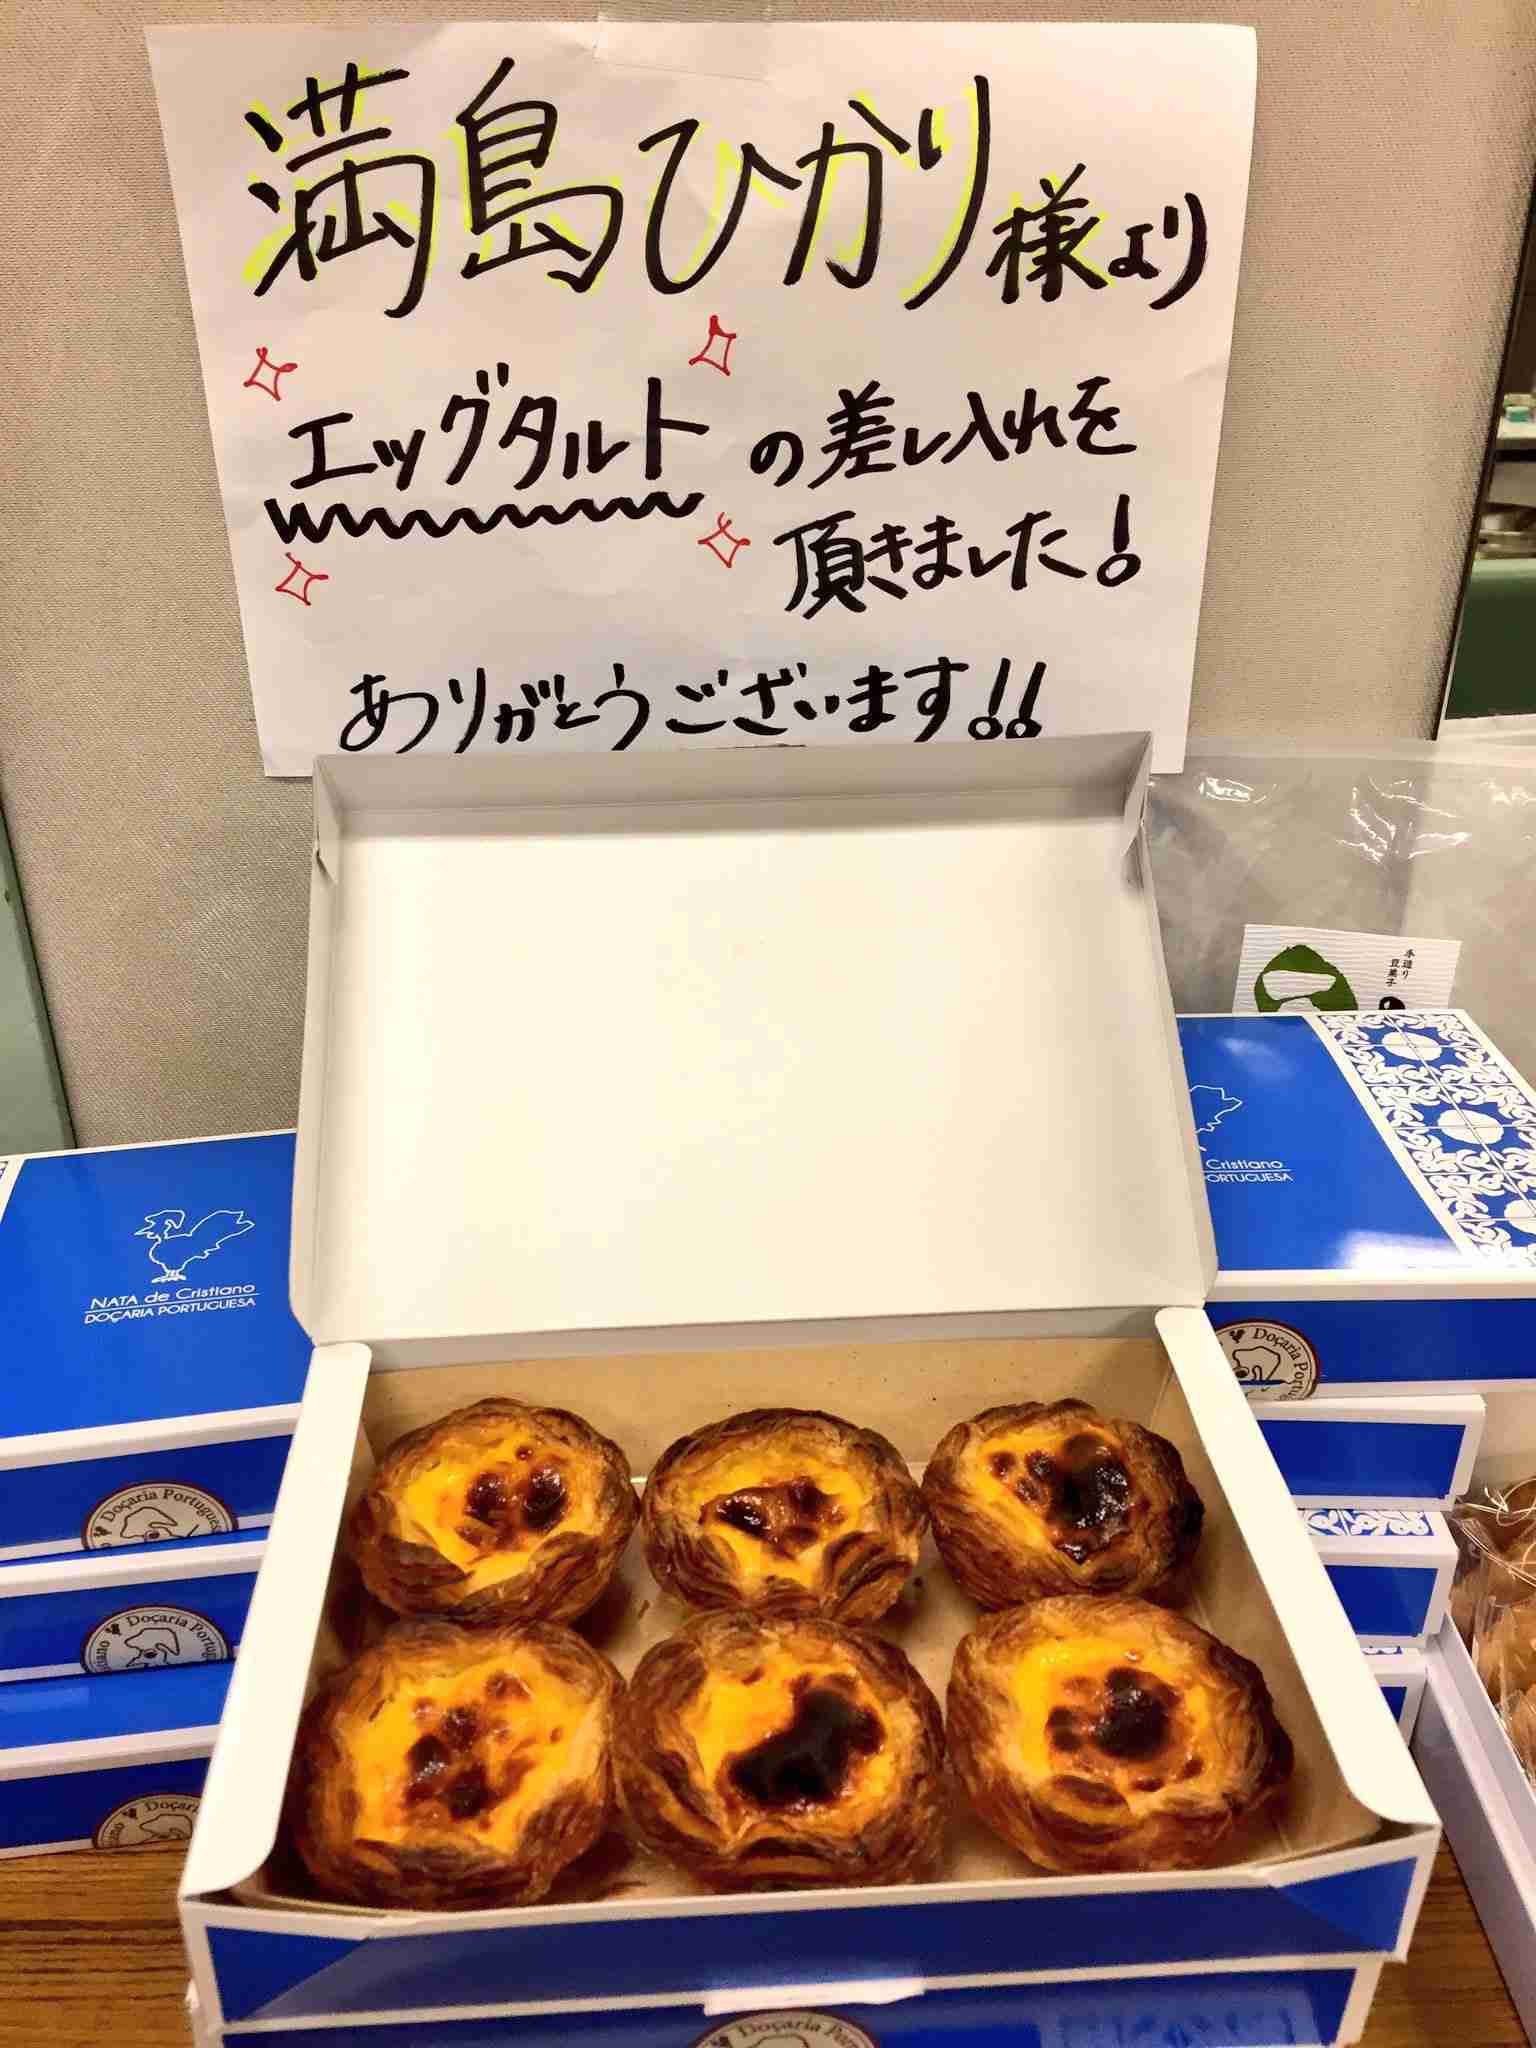 満島ひかり様より
エッグタルトの差し入れを
頂きました!
ありがとうございます!!
手造り
豆菓子
Cristiano
PORTUGUESA
NATA de Cristiano
DOÇARIA PORTUGUESA
Doçaria
Doçaria Portugues
Doçaria
Doçaria